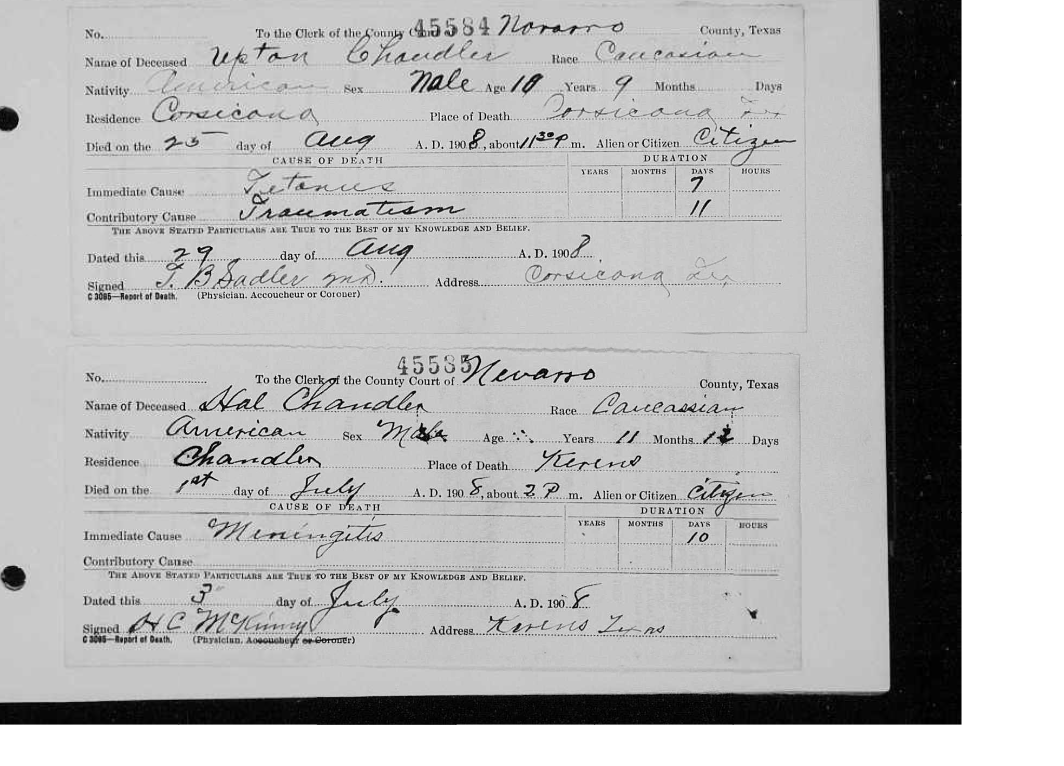 No. To the Clerk of the County Court of 45584 Navarro County, Texas
Name of Deceased Upton Chandler Race Caucasian
Nativity American Sex Male Age 10 Years 9 Months Days
Residence Corsicana Place of Death Corsicana Tex
Died on the 25 day of Aug A. D. 1908, about 11 30 P m. Alien or Citizen Citizen
CAUSE OF DEATH DURATION
YEARS MONTHS DAYS HOURS
Immediate Cause Tetanus 7
Contributory Cause Traumatism 11
THE ABOVE STATED PARTICULARS ARE TRUE TO THE BEST OF MY KNOWLEDGE AND BELIEF.
Dated this 29 day of Aug A. D. 1908
Signed T. B Sadler MD. Address Corsicana Tex
C 3085—Report of Death. (Physician, Accoucheur or Coroner)
45585
No. To the Clerk of the County Court of Nevarro County, Texas
Name of Deceased Hal Chandler Race Caucassian
Nativity American Sex Male Age Years 11 Months 12 Days
Residence Chandler Place of Death Kerens
Died on the 1st day of July A. D. 1908, about 2 P m. Alien or Citizen Citizen
CAUSE OF DEATH DURATION
YEARS MONTHS DAYS HOURS
Immediate Cause Meningitis 10
Contributory Cause
THE ABOVE STATED PARTICULARS ARE TRUE TO THE BEST OF MY KNOWLEDGE AND BELIEF.
Dated this 3 day of July A. D. 1908
Signed H C McKinny Address Kerens Texas
C 3085—Report of Death. (Physician, Accoucheur or Coroner)